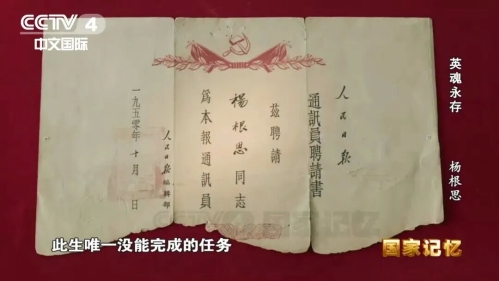 CCTV 4
中文国际
人民日报
通訊員聘請書
茲聘請
楊根思同志
爲本報通訊員
人民日报編輯部
一九五〇年十月 日
英魂永存 杨根思
此生唯一没能完成的任务
国家记忆